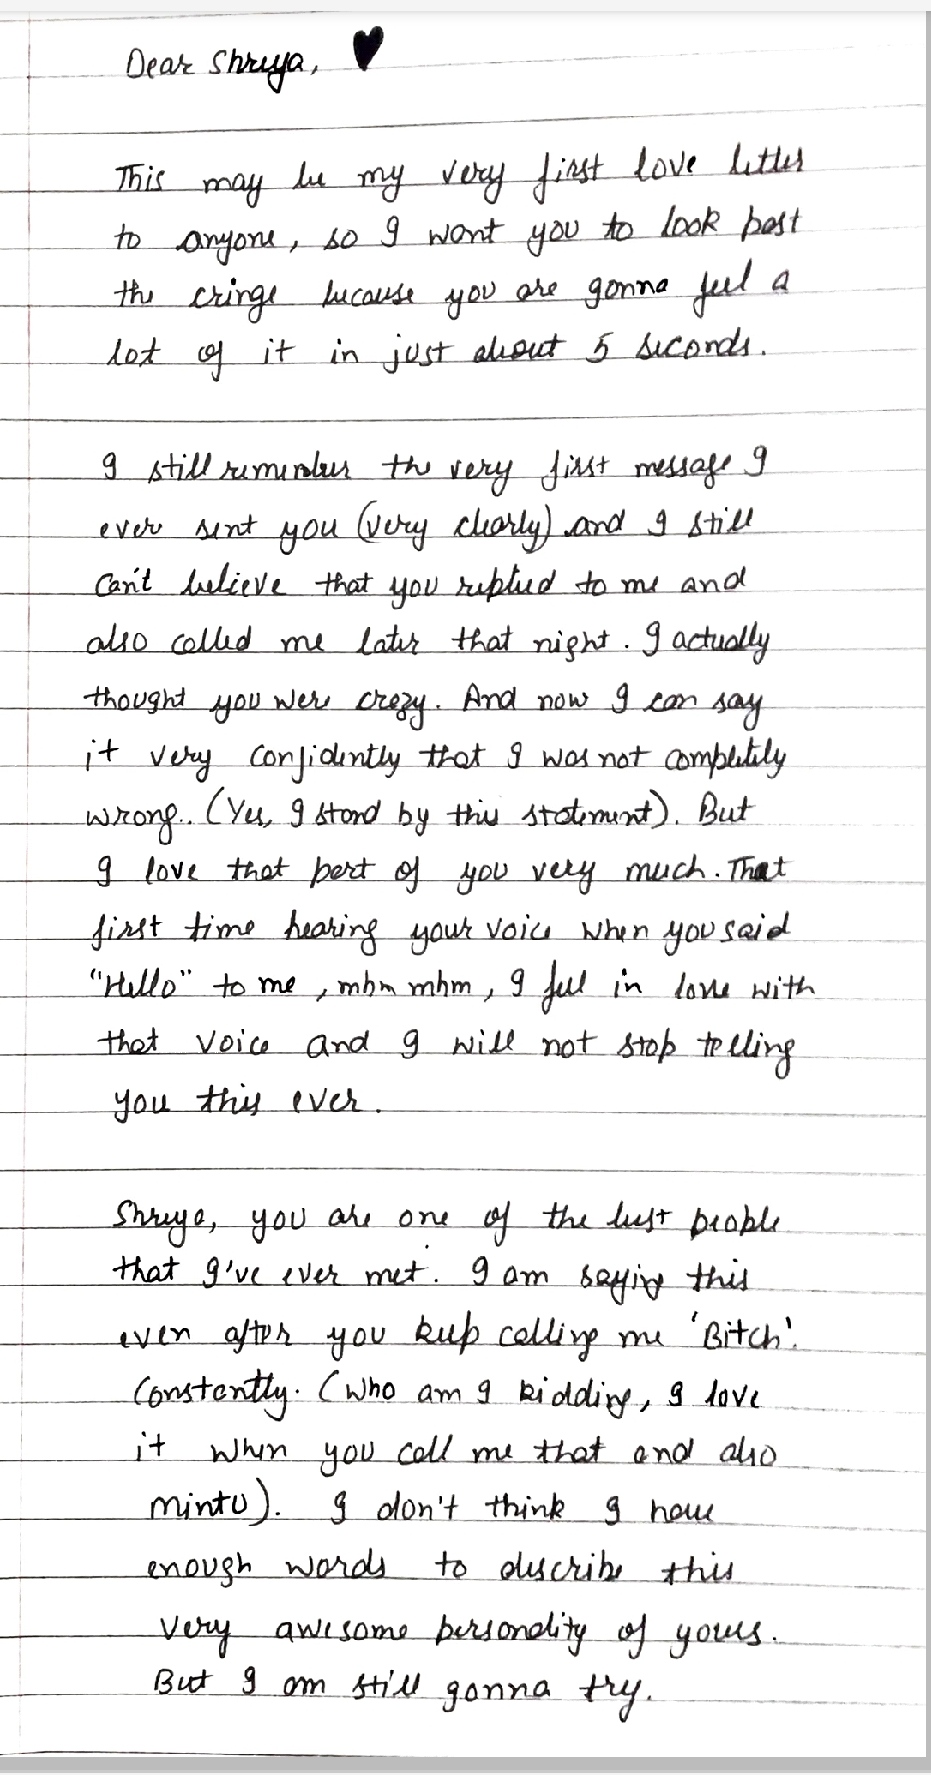 Dear Shreya, ♥
This may be my very first love letter
to anyone, so I want you to look past
the cringe because you are gonna feel a
lot of it in just about 5 seconds.
I still remember the very first message I
ever sent you (very clearly) and I still
can't believe that you replied to me and
also called me later that night. I actually
thought you were crazy. And now I can say
it very confidently that I was not completely
wrong.. (Yes, I stand by this statement). But
I love that part of you very much. That
first time hearing your voice when you said
"Hello" to me, mhm mhm, I fell in love with
that voice and I will not stop telling
you this ever.
Shreya, you are one of the best people
that I've ever met. I am saying this
even after you keep calling me 'Bitch'.
Constantly. (Who am I kidding, I love
it when you call me that and also
mintu). I don't think I have
enough words to describe this
very awesome personality of yours.
But I am still gonna try.